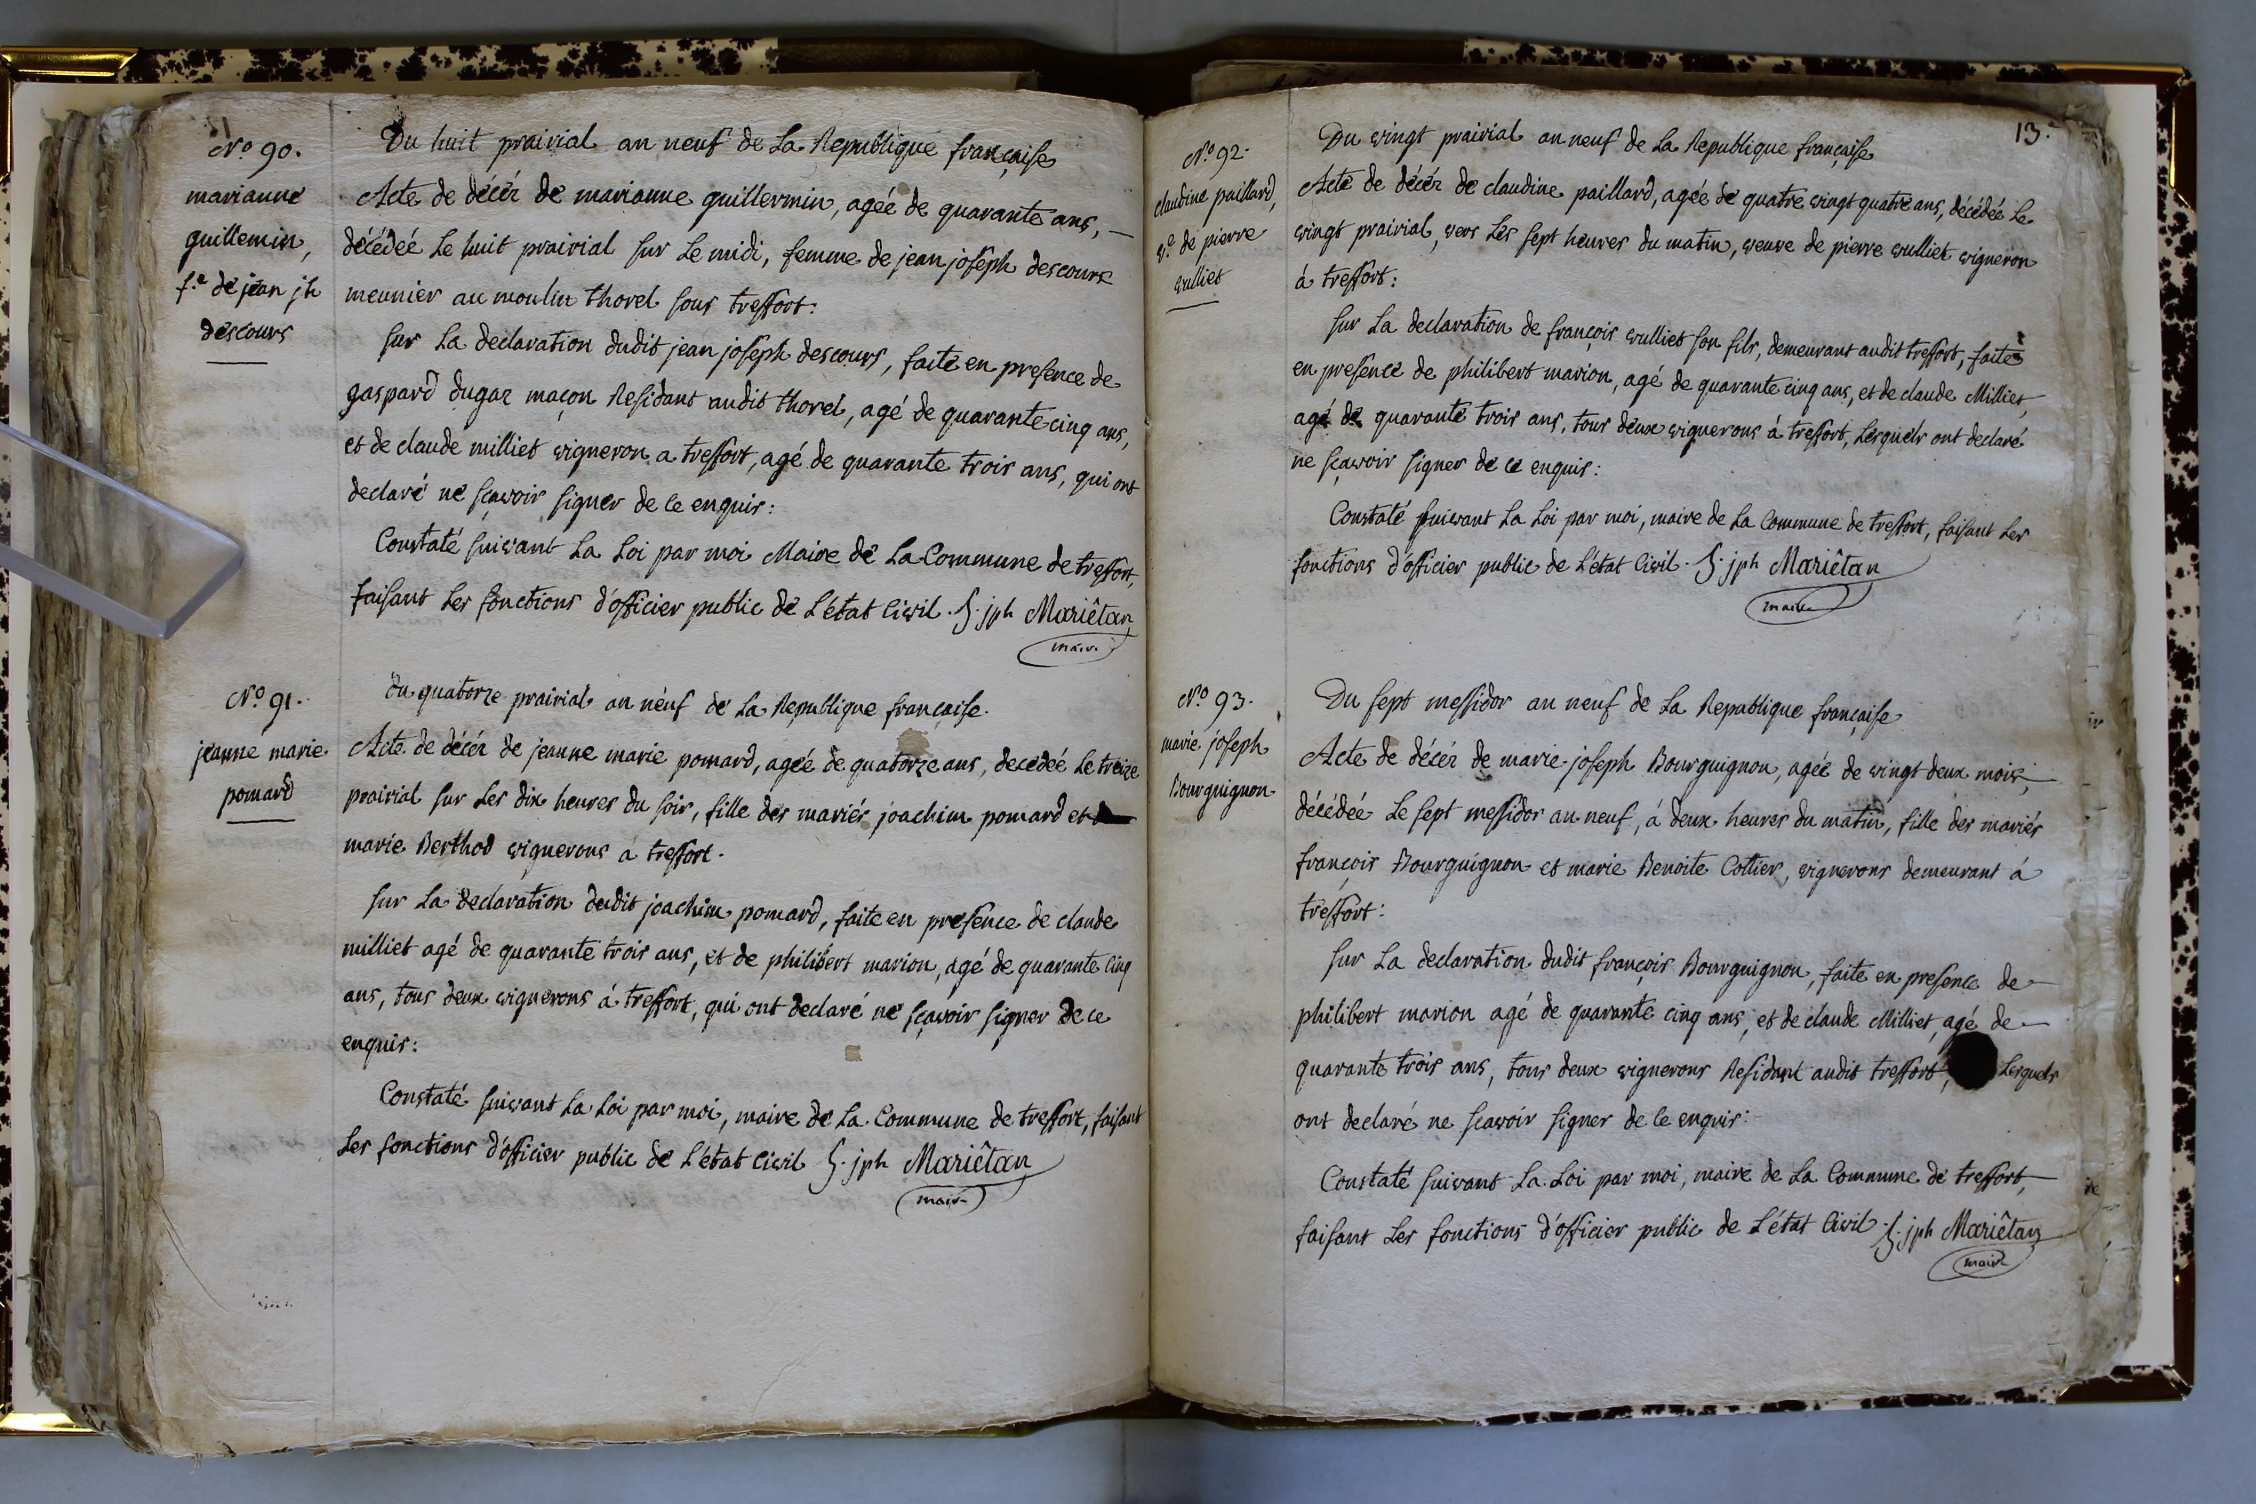 N.o 90.
marianne
guillemin,
f.e de jean jh
descours
Du huit prairial an neuf de La Republique française
Acte de décéz de marianne guillermin, agéé de quarante ans,
décédéé Le huit prairial sur Le midi, femme de jean joseph descours
meunier au moulin thorel sous treffort:
sur La declaration dudit jean joseph descours, faite en presence de
gaspard dugaz maçon Residant audit thorel, agé de quarante cinq ans,
et de claude milliet vigneron a treffort, agé de quarante trois ans, qui ont
declaré ne sçavoir signer de ce enquis:
Constaté suivant La Loi par moi Maire de La Commune de treffort,
faisant Les fonctions d'officier public de L'état Civil. jph Mariêtan
maire
N.o 91.
jeanne marie
pomard
Du quatorze prairial an neuf de La Republique francaise.
Acte de décéz de jeanne marie pomard, agéé de quatorze ans, decedéé Le treize
prairial sur Les dix heures du soir, fille des mariés joachim pomard et
marie Berthod vignerons a treffort.
sur La declaration dudit joachim pomard, faite en presence de claude
milliet agé de quarante trois ans, et de philibert marion, agé de quarante Cinq
ans, tous deux vignerons á treffort, qui ont declaré ne sçavoir signer de ce
enquis:
Constaté suivant La Loi par moi, maire de La Commune de treffort, faisant
Les fonctions d'officier public de L'état Civil jph Mariêtan
maire
13.
N.o 92.
claudine paillard,
v.e de pierre
vulliet
Du vingt prairial an neuf de La Republique française
Acte de décéz de claudine paillard, agéé de quatre vingt quatre ans, décédéé Le
vingt prairial, vers Les sept heures du matin, veuve de pierre vulliet vigneron
á treffort:
sur La declaration de françois vulliet son fils, demeurant audit treffort, faite
en presence de philibert marion, agé de quarante cinq ans, et de claude Milliet,
agé de quarante trois ans, tous deux vignerons á treffort, Lesquels ont declaré
ne sçavoir signer de ce enquis:
Constaté suivant La Loi par moi, maire de La Commune de treffort, faisant Les
fonctions d'officier public de L'état Civil. jph Mariêtan
maire
N.o 93.
marie joseph
Bourguignon
Du sept messidor an neuf de La Republique française
Acte de décéz de marie joseph Bourguignon, agéé de vingt deux mois,
décédéé Le sept messidor an neuf, á deux heures du matin, fille des mariés
françois Bourguignon et marie Benoite Cottier, vignerons demeurant á
treffort:
sur La declaration dudit françois Bourguignon, faite en presence de
philibert marion agé de quarante cinq ans, et de claude Milliet, agé de
quarante trois ans, tous deux vignerons Residant audit treffort, Lesquels
ont declaré ne sçavoir signer de ce enquis:
Constaté suivant La Loi par moi, maire de La Commune de treffort,
faisant Les fonctions d'officier public de L'état Civil. jph Mariêtan
maire